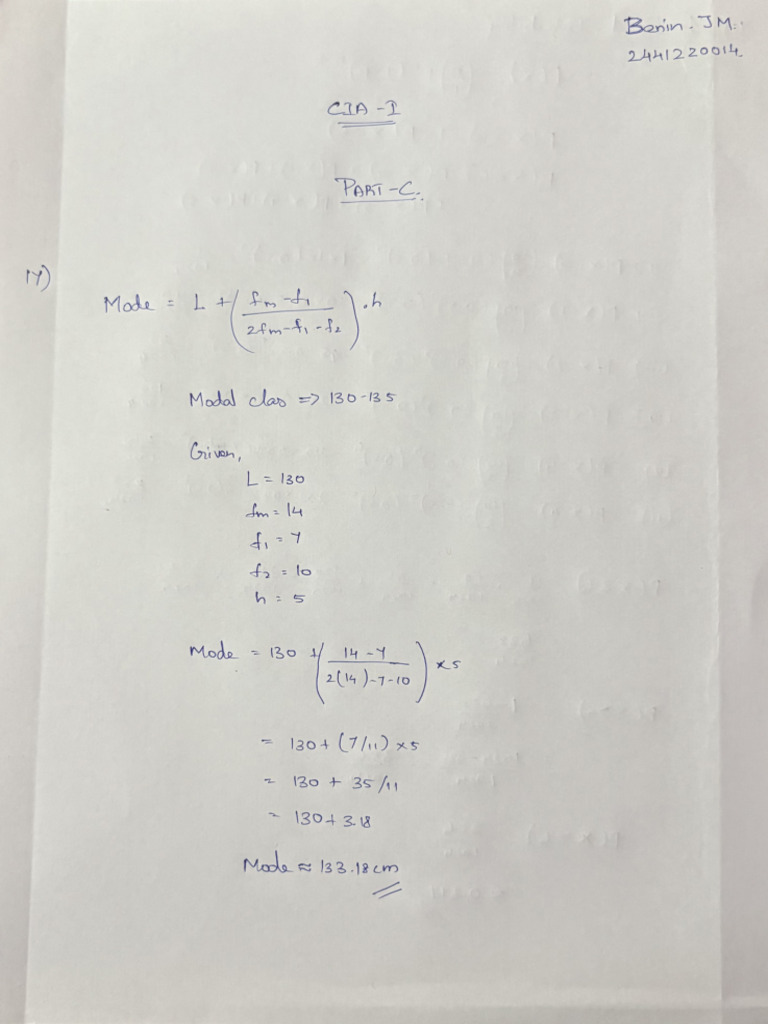 Benin. J M.
2441220014.
CIA - I
PART - C.
17)
Mode = L + ( fm - f1 / 2fm - f1 - f2 ) . h
Modal class => 130-135
Given,
L = 130
fm = 14
f1 = 7
f2 = 10
h = 5
Mode = 130 + ( 14 - 7 / 2(14) - 7 - 10 ) × 5
= 130 + (7/11) × 5
= 130 + 35/11
= 130 + 3.18
Mode ≈ 133.18 cm